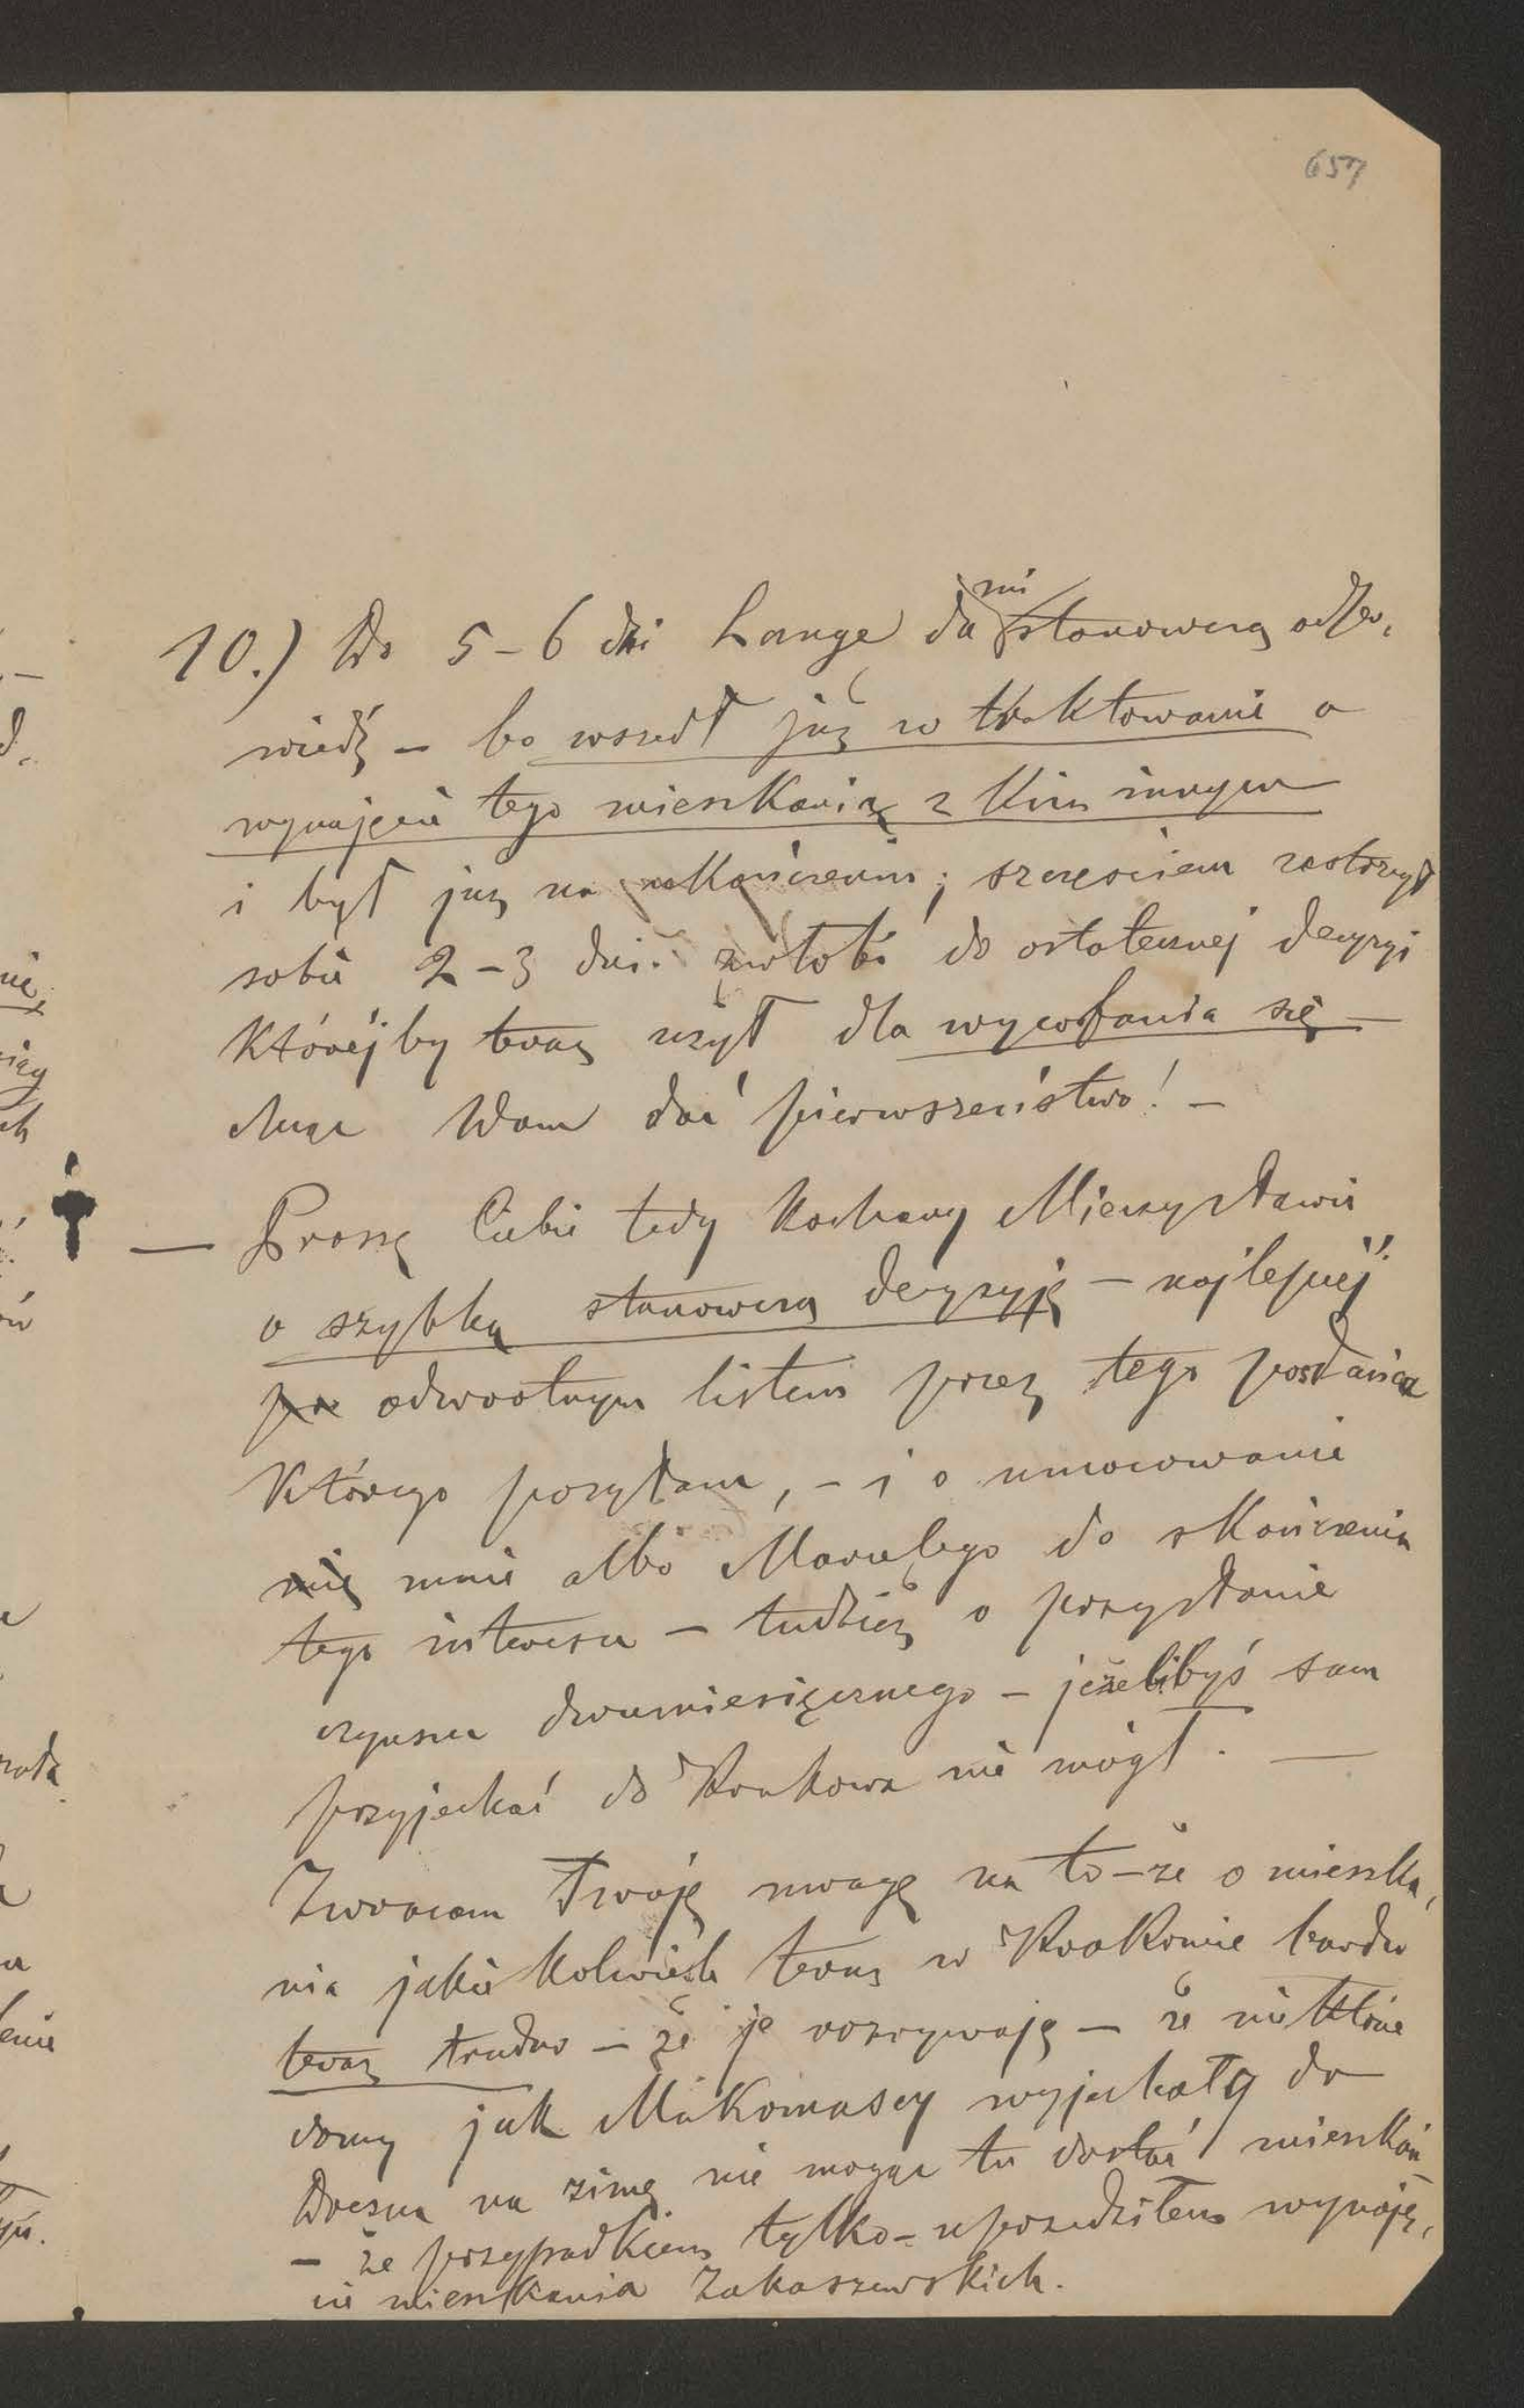 657
10.) Do 5-6 dni Lange da mi stanowczą odpo,
wiedź – bo wszedł już w traktowanie o
wynajęcie tego mieszkania z kim innym
i był już na ukończeniu; szczęściem zastrzegł
sobie 2-3 dni zwłoki do ostatecznej decyzyi
którejby teraz użył dla wycofania się –
chcąc Wam dać pierwszeństwo! –
– Proszę Ciebie tedy kochany Mieczysławie
o szybką stanowczą decyzyję – najlepiej
odwrotnym listem przez tego posłańca
którego posyłam, – i o umocowanie
mnie albo Marulego do skończenia
tego interesu – tudzież o przysłanie
czynszu dwumiesięcznego – jeżelibyś sam
przyjechać do Krakowa nie mógł. –
Zwracam Twoję uwagę na to – że o mieszka,
nia jakiekolwiek teraz w Krakowie bardzo
teraz trudno – że je rozrywają – że niektóre
domy jak Makomasey wyjechały do
Drezna na zimę nie mogąc tu dostać mieszkań
– że przypadkiem tylko – uprzedziłem wynaję,
cie mieszkania Zakaszewskich.
ną
nie